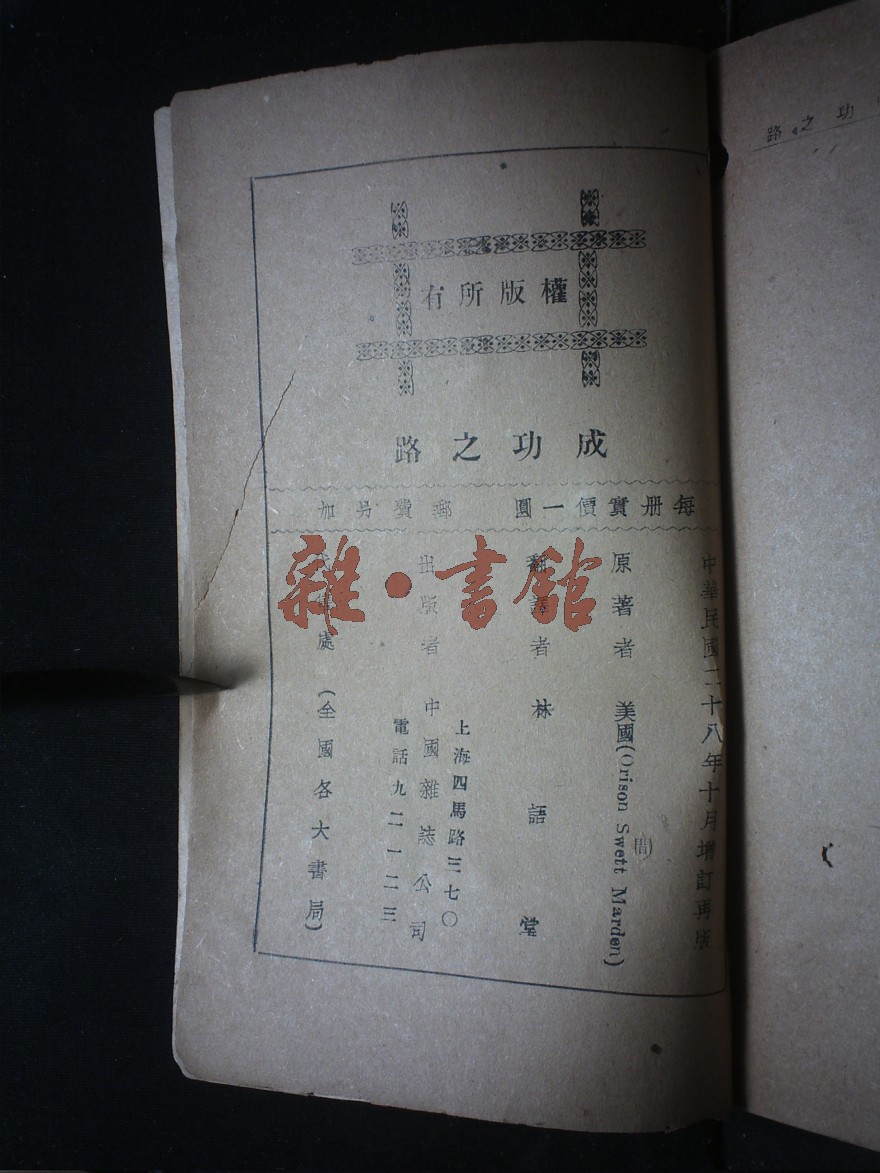 權版所有
成功之路
每冊實價一圓 郵費另加
中華民國二十八年十月增訂再版
原著者 美國(Orison Swett Marden)
翻譯者 林語堂
出版者 中國雜誌公司
上海四馬路三七〇
電話九二一二三
處 (全國各大書局)
功之路
雜·書館